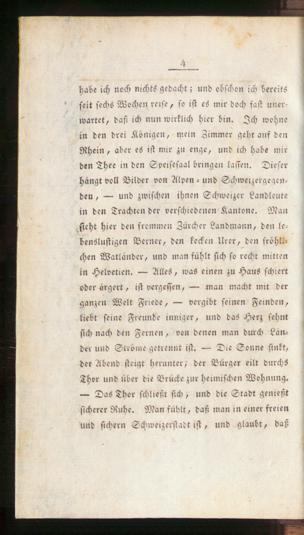 4
habe ich noch nichts gedacht; und obschon ich bereits
seit sechs Wochen reise, so ist es mir doch fast uner-
wartet, daß ich nun wirklich hier bin. Ich wohne
in den drei Königen, mein Zimmer geht auf den
Rhein, aber es ist mir zu enge, und ich habe mir
den Thee in den Speisesaal bringen lassen. Dieser
hängt voll Bilder von Alpen- und Schweizergegen-
den, — und zwischen ihnen Schweizer Landleute
in den Trachten der verschiedenen Kantone. Man
sieht hier den frommen Zürcher Landmann, den le-
benslustigen Berner, den kecken Urer, den fröhli-
chen Watländer, und man fühlt sich so recht mitten
in Helvetien. — Alles, was einen zu Haus schiert
oder ärgert, ist vergessen, — man macht mit der
ganzen Welt Friede, — vergibt seinen Feinden,
liebt seine Freunde inniger, und das Herz sehnt
sich nach den Fernen, von denen man durch Län-
der und Ströme getrennt ist. — Die Sonne sinkt,
der Abend steigt herunter; der Bürger eilt durchs
Thor und über die Brücke zur heimischen Wohnung.
— Das Thor schließt sich, und die Stadt genießt
sicherer Ruhe. Man fühlt, daß man in einer freien
und sichern Schweizerstadt ist, und glaubt, daß